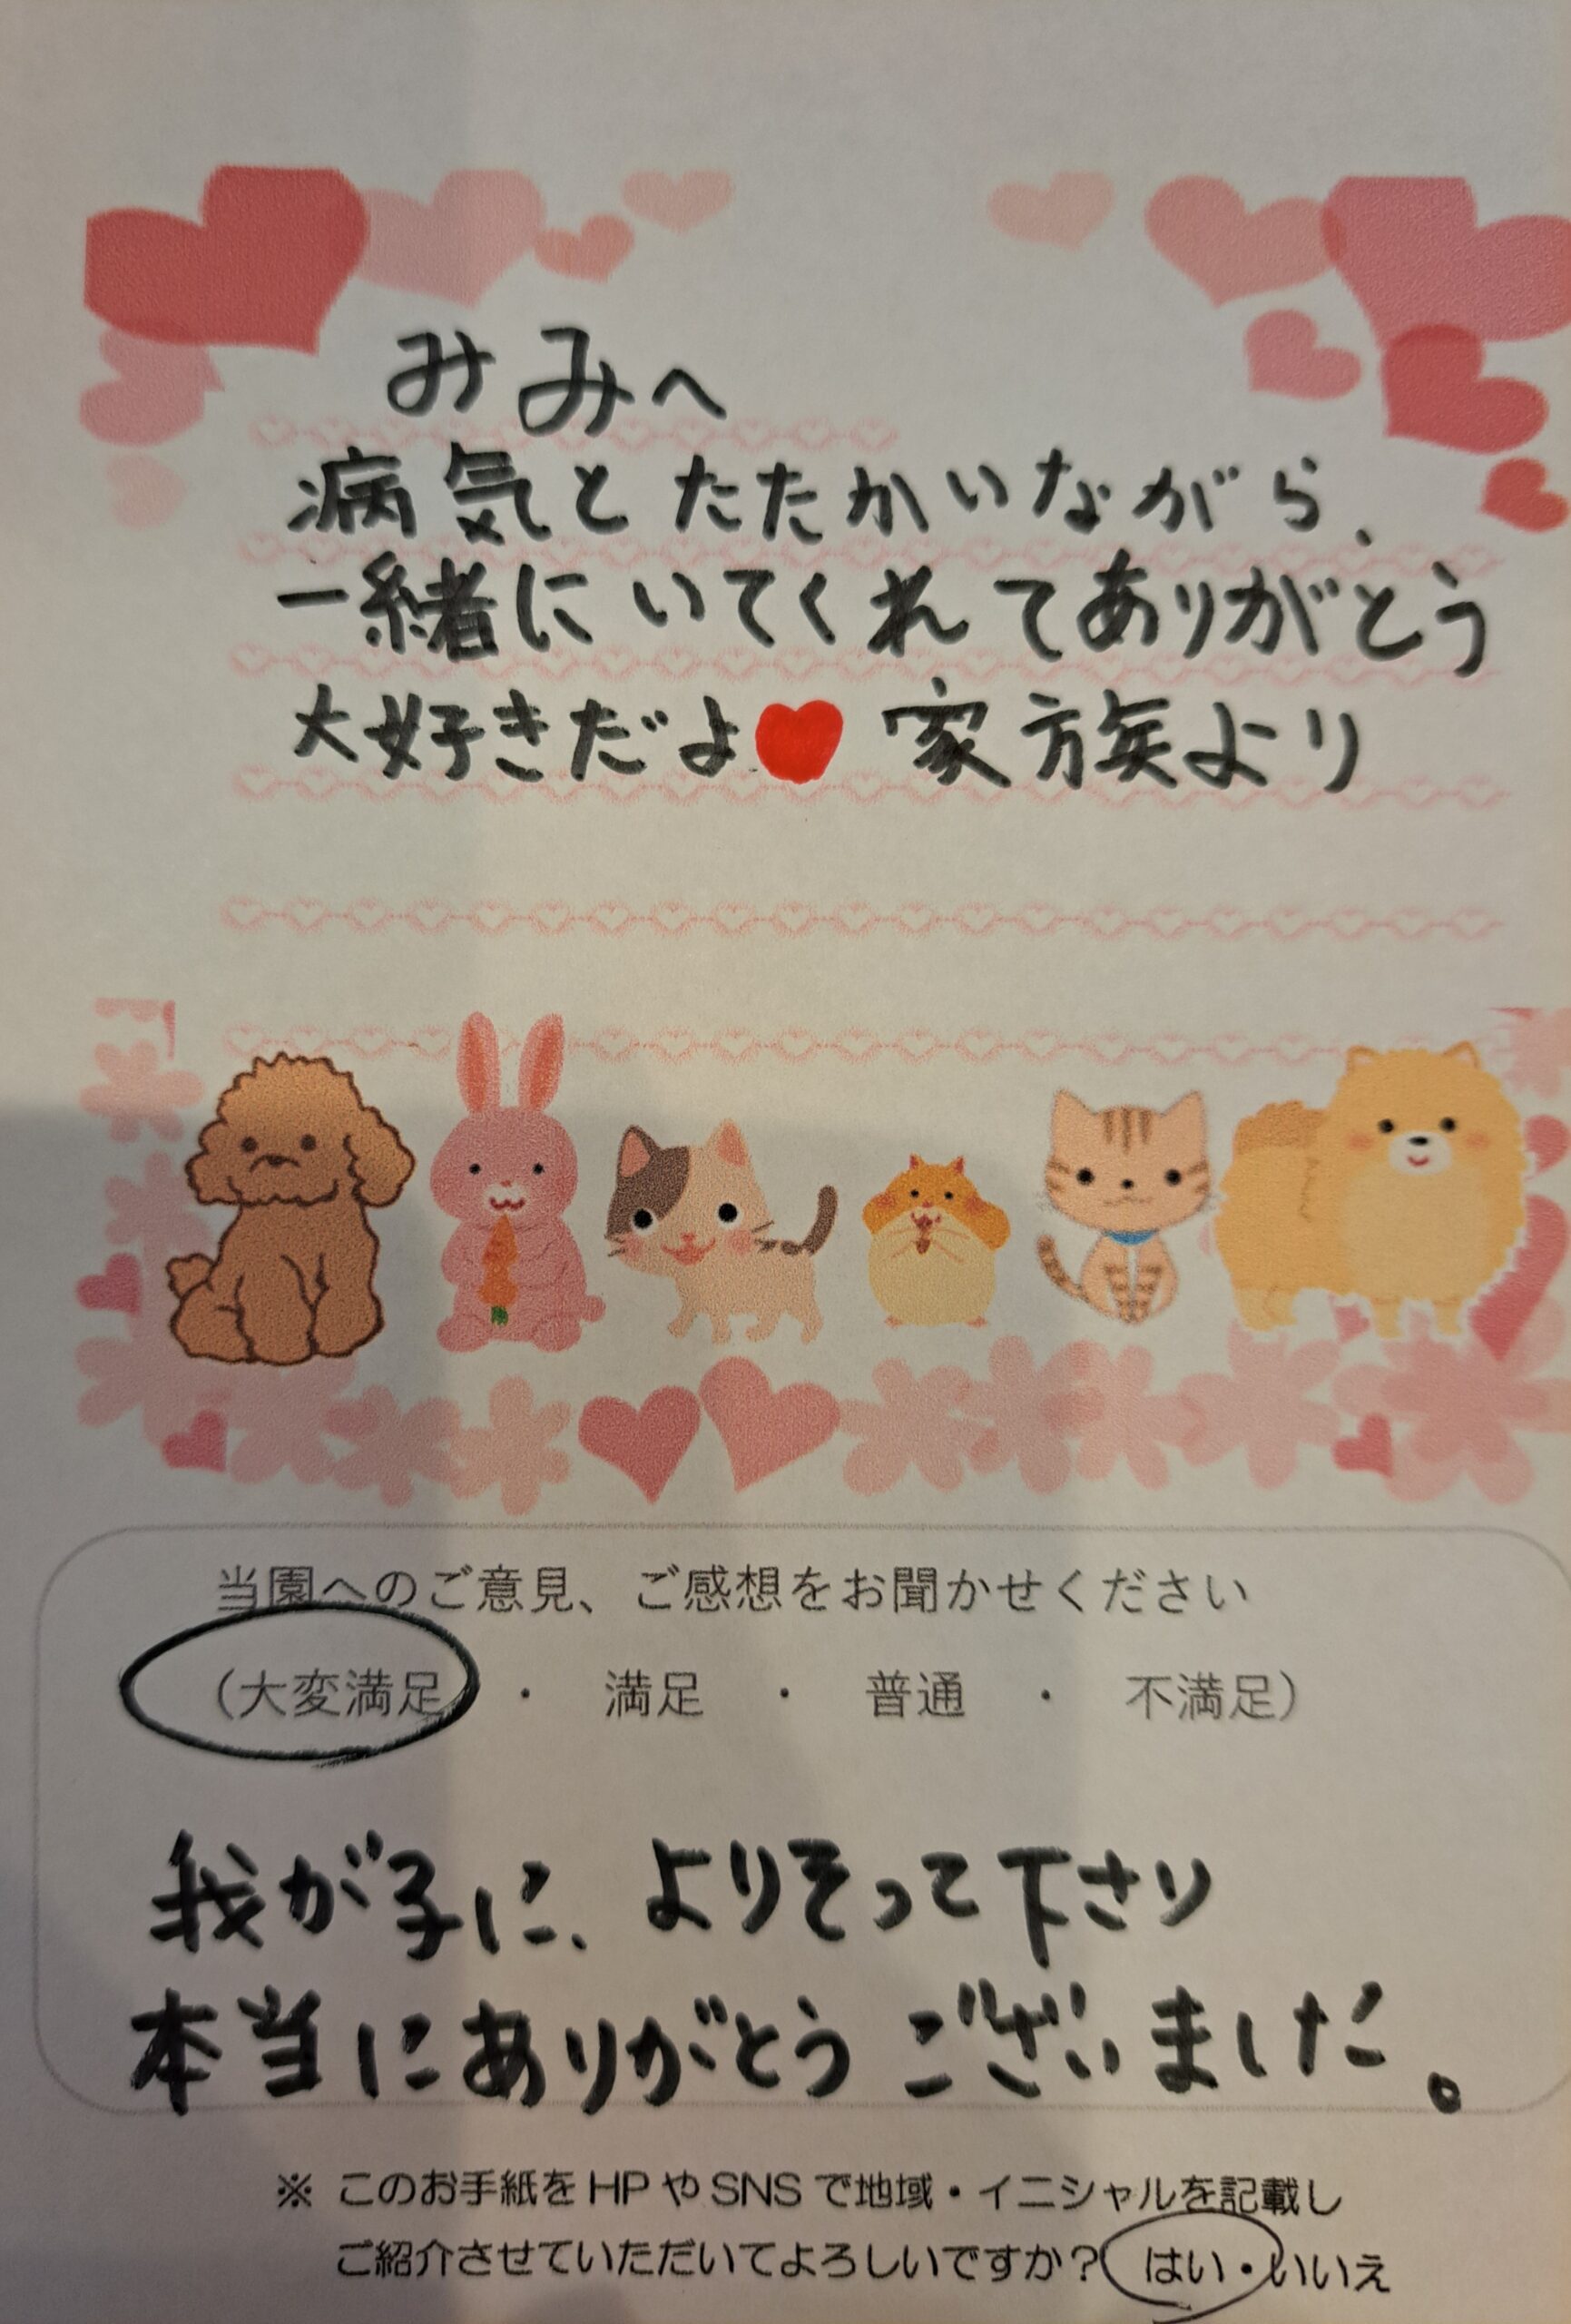 みみへ
病気とたたかいながら、
一緒にいてくれてありがとう
大好きだよ♥ 家族より
当園へのご意見、ご感想をお聞かせください
（大変満足 ・ 満足 ・ 普通 ・ 不満足）
我が子に、よりそって下さり
本当にありがとうございました。
※ このお手紙をHPやSNSで地域・イニシャルを記載し
ご紹介させていただいてよろしいですか？ はい・いいえ